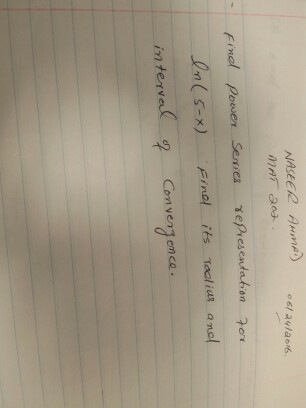 NASEER AHMAD 06/24/2016.
MAT 202.
- Find power series representation for
ln(5-x) Find its radius and
interval of Convergence.